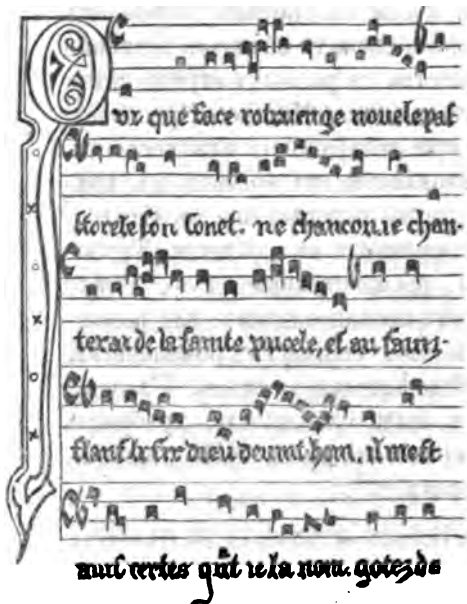 Qui que face rotruenge novele pas
torele son sonet. ne chancon. ie chan-
terai de la sainte pucele, et au saint
flans le fix dieu devint hom. il mest
auis certes qnt ie la nom. gotez de